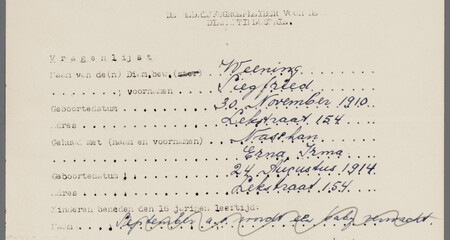 Vragenlijst
Naam van de(n) Dien.bew.(ster) Weening
; voornamen Siegfried
Geboortedatum 30 November 1910.
Adres Lekstraat 154
Gehuwd met (naam en voornamen) Naschan
Erna Irma
Geboortedatum 24 Augustus 1914.
Adres Lekstraat 154.
Kinderen beneden den 16 jarigen leeftijd:
Naam September a.s. wordt de baby verwacht.